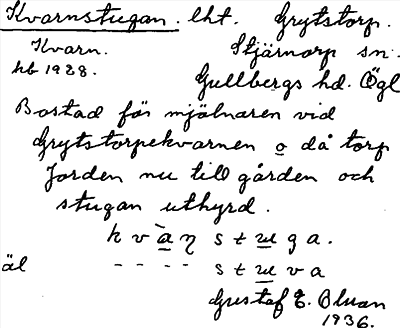 Kvarnstugan. lht. Grytstorp.
Kvarn. Stjärnorp sn.
hb 1928. Gullbergs hd. Ögl
Bostad för mjölnaren vid
Grytstorpekvarnen o då torp
Jorden nu till gården och
stugan uthyrd.
kvàn stuga.
äl - - - - stuva
Gustaf E. Bluan
1936.